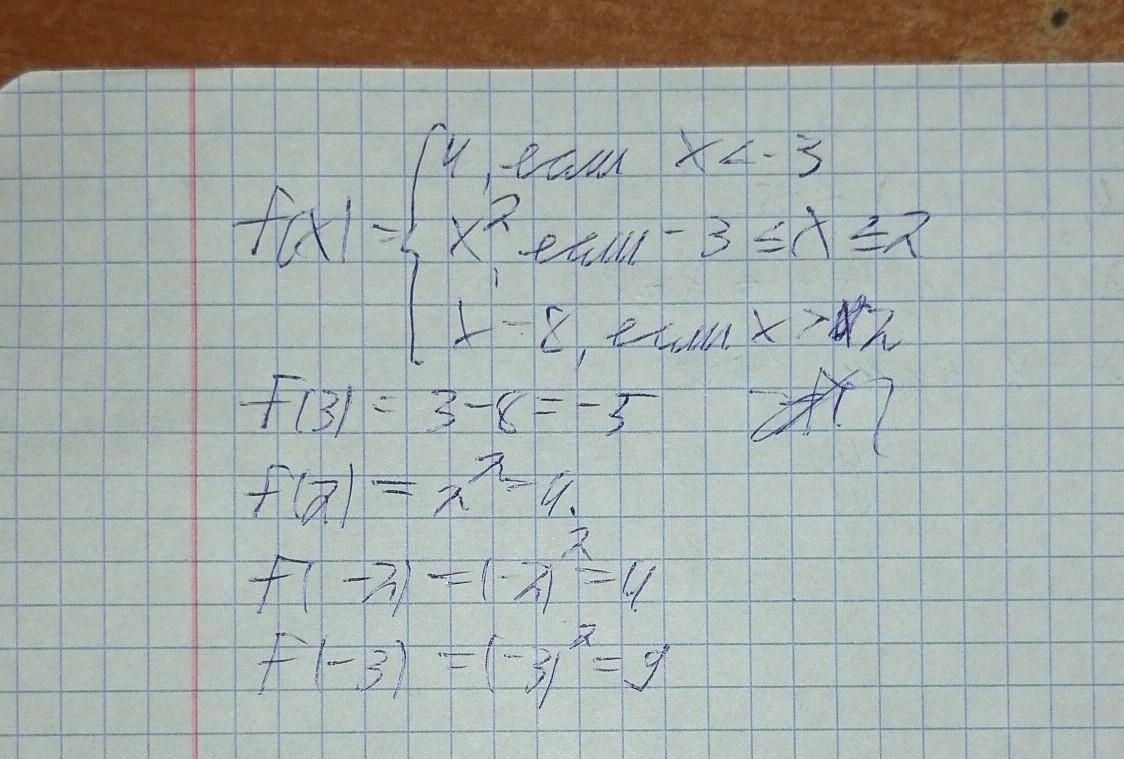 4, если x < -3
f(x) = { x², если -3 ≤ x ≤ 2
x - 8, если x > 2
f(3) = 3 - 8 = -5
f(2) = 2² = 4.
f(-2) = (-2)² = 4
f(-3) = (-3)² = 9